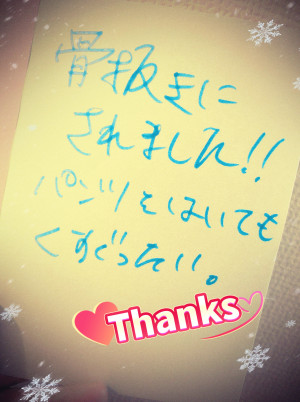 骨抜きに
されました!!
パンツをはいても
くすぐったい。
Thanks